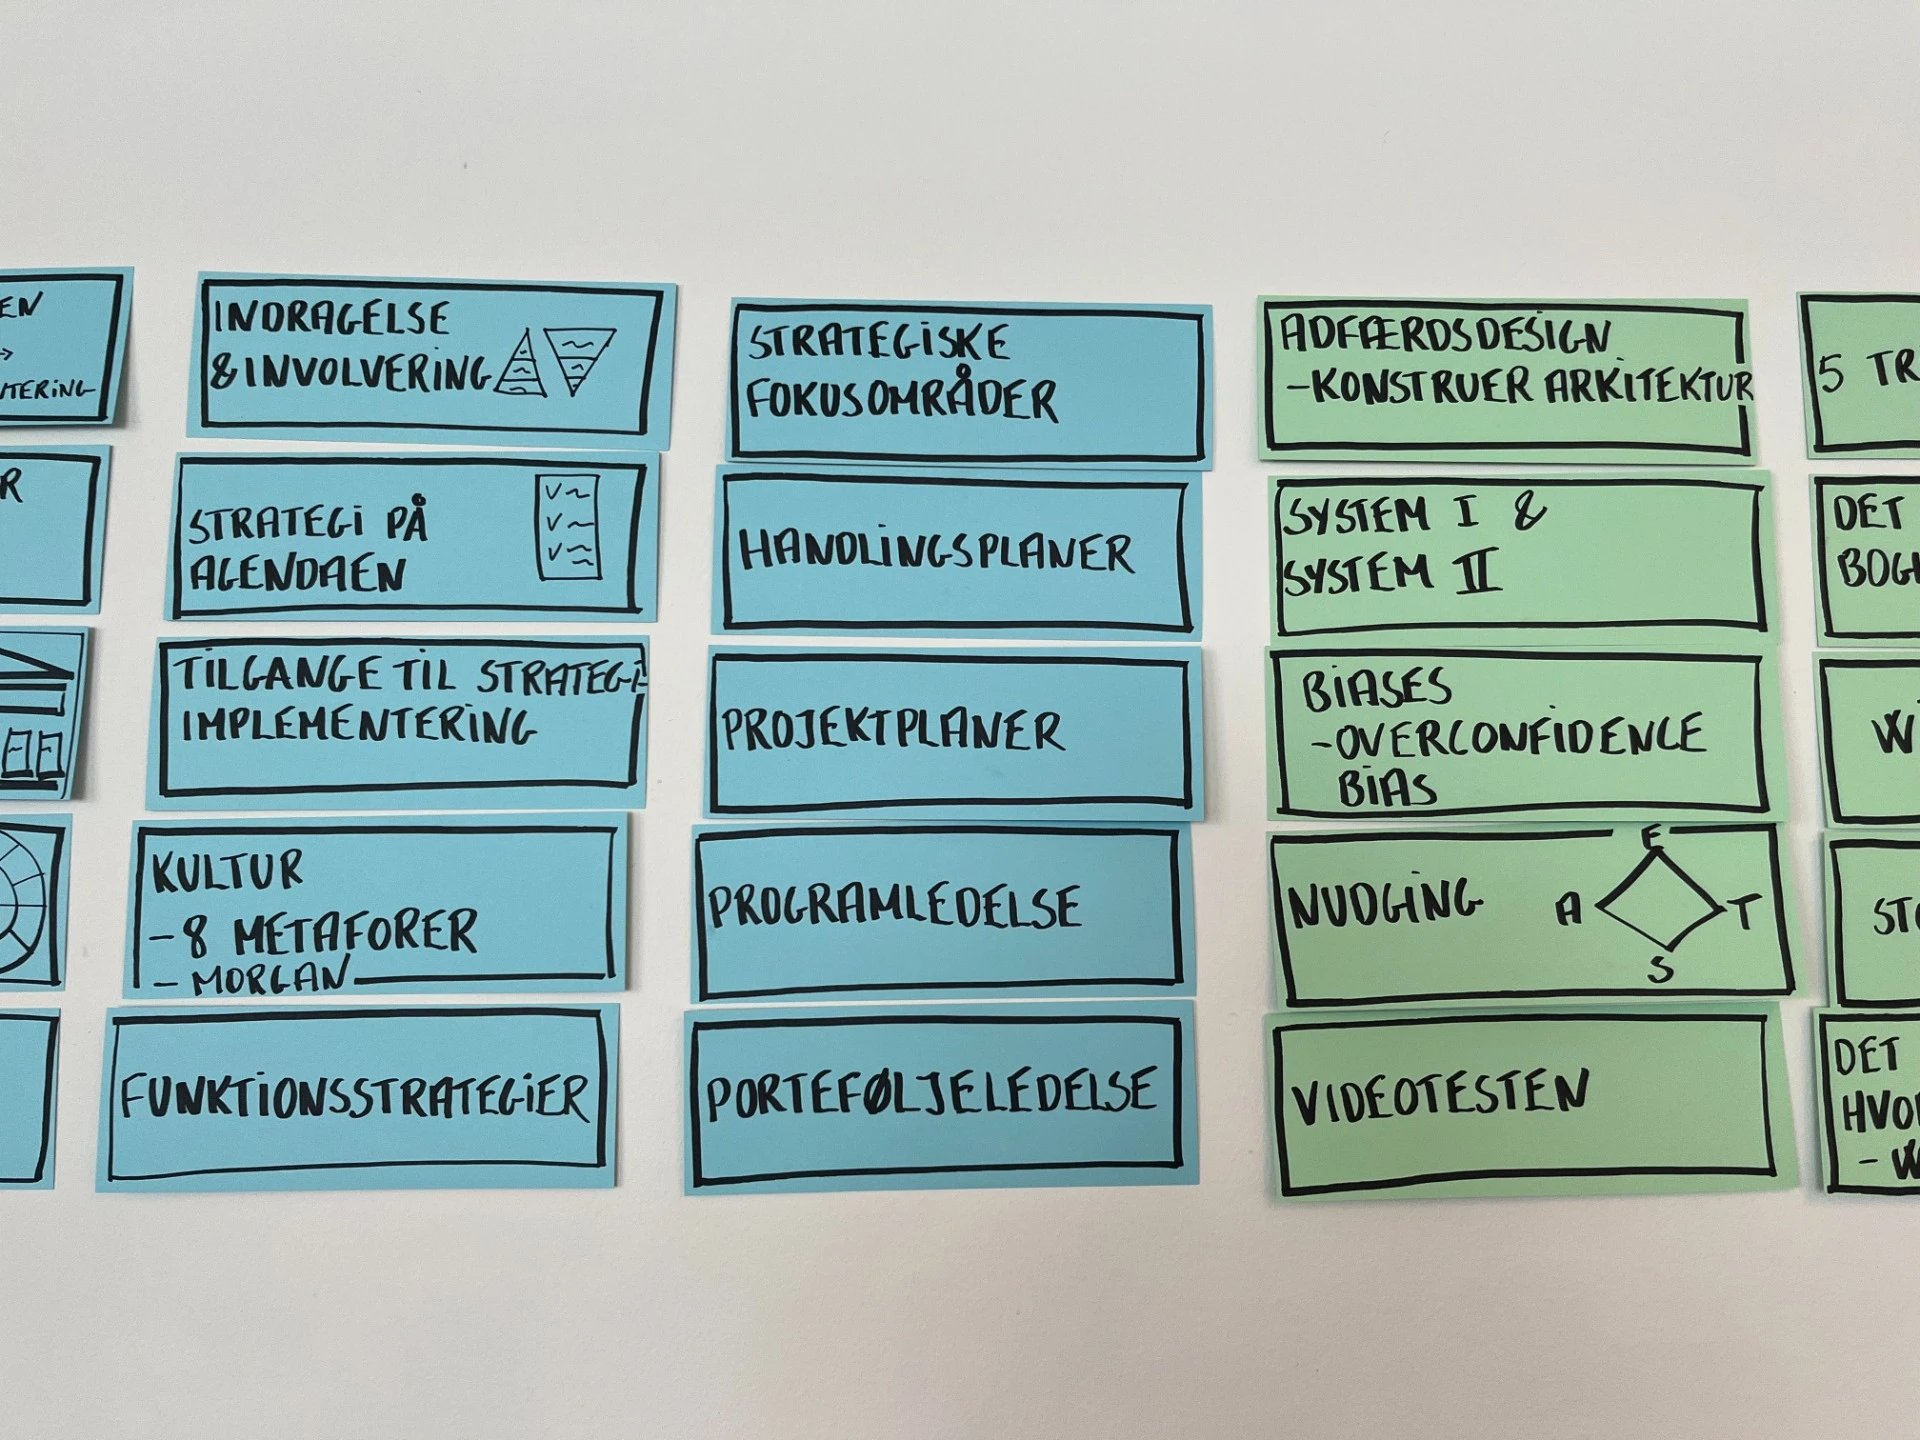 INDRAGELSE
& INVOLVERING
STRATEGI PÅ
AGENDAEN
TILGANGE TIL STRATEGI
IMPLEMENTERING
KULTUR
- 8 METAFORER
- MORGAN
FUNKTIONSSTRATEGIER
STRATEGISKE
FOKUSOMRÅDER
HANDLINGSPLANER
PROJEKTPLANER
PROGRAMLEDELSE
PORTEFØLJELEDELSE
ADFÆRDSDESIGN
- KONSTRUER ARKITEKTUR
SYSTEM I &
SYSTEM II
BIASES
- OVERCONFIDENCE
BIAS
E
NUDGING A T
S
VIDEOTESTEN
5
DET
DET